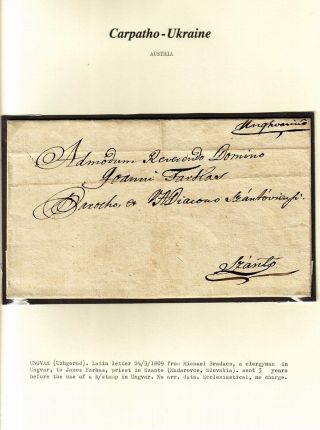 Carpatho-Ukraine
AUSTRIA
Unghvarino
Admodum Reverendo Domino
Joanni Farkas
Parocho, et VADiacono Szántóviensi
Szántó
UNGVAR (Uzhgorod). Latin letter 24/3/1809 from Michael Bradacs, a clergyman in
Ungvar, to Janos Farkas, priest in Szanto (Nadarovce, Slovakia). sent 3 years
before the use of a h/stamp in Ungvar. No arr. data. Ecclesiastical, no charge.